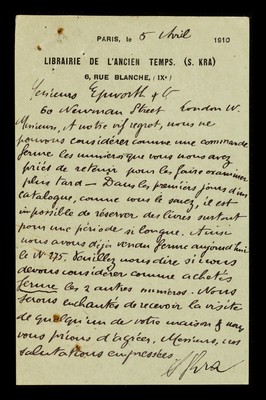 PARIS, le 5 Avril 1910
LIBRAIRIE DE L'ANCIEN TEMPS. (S. KRA)
6, RUE BLANCHE, (IXe)
Messieurs Epworth & Co
60 Newman Street London W.
Messieurs, A notre vif regret, nous ne
pouvons considérer comme une commande
ferme les numéros que vous nous avez
priés de retenir pour les faire examiner
plus tard — Dans les premiers jours d'un
catalogue, comme vous le savez, il est
impossible de réserver des livres surtout
pour une période si longue. Ainsi
nous avons déjà vendu ferme aujourd'hui
le No 275. Veuillez nous dire si nous
devons considérer comme achetés
ferme les 2 autres numéros. Nous
serons enchantés de recevoir la visite
de quelqu'un de votre maison & nous
vous prions d'agréer, Messieurs, nos
salutations empressées
S Kra